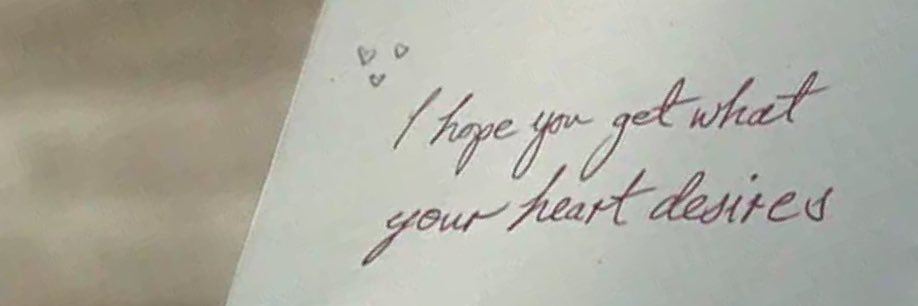 I hope you get what
your heart desires